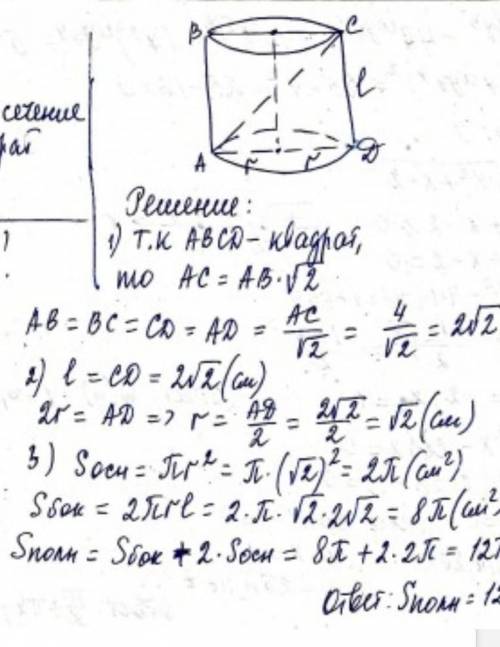 B C
l
сечение
A r r D
Решение:
1) Т.к ABCD - квадрат,
то AC = AB·√2
AB = BC = CD = AD = AC/√2 = 4/√2 = 2√2
2) l = CD = 2√2 (см)
2r = AD => r = AD/2 = 2√2/2 = √2 (см)
3) Sосн = πr² = π·(√2)² = 2π (см²)
Sбок = 2πrl = 2·π·√2·2√2 = 8π (см²
Sполн = Sбок + 2·Sосн = 8π + 2·2π = 12π
Ответ: Sполн = 12